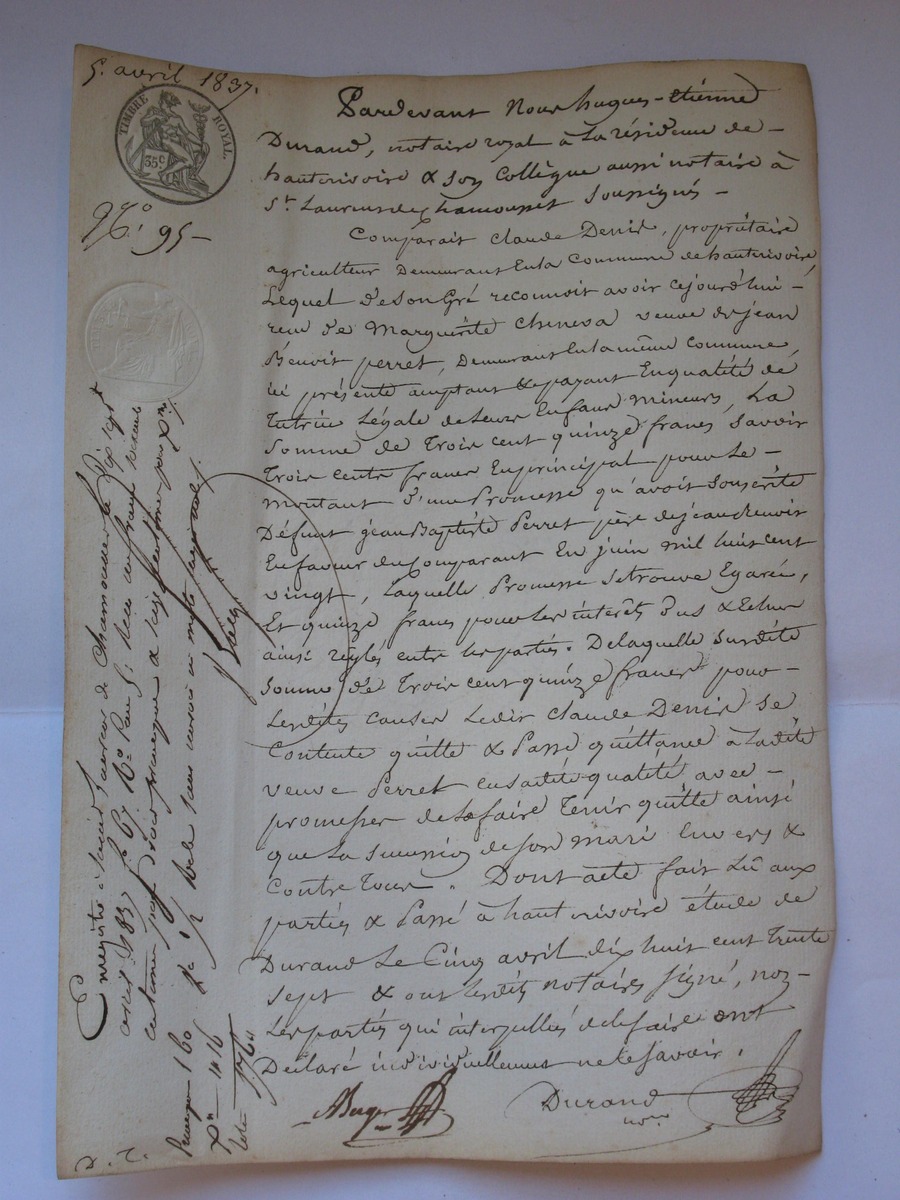 5. avril 1837.
TIMBRE ROYAL.
35c
No. 95 -
Pardevant Nous hugues-étienne
Durand, notaire royal à La résidence de -
hauterivoire & son Collègue aussi notaire à
St. Laurent de Chamousset Soussignés -
Comparait Claude Denis, propriétaire
agriculteur Demeurant En la Commune de hauterivoire
Lequel de son Gré reconnoit avoir cejourd'hui -
reçu de Marguérite Cheneva veuve de jean
Benoit perret, Demeurant En la même Commune,
ici présente acceptant & payant En qualité de
Tutrice Légale de Leurs Enfans mineurs, La
Somme de Trois cent quinze francs, Savoir
Trois cents francs En principal pour Le -
montant d'une Promesse qu'avoit Souscrite
Défunt jean Baptiste Perret père de jean Benoit
En faveur du Comparant En juin mil huit cent
vingt, Laquelle Promesse Se trouve Egarée,
Et quinze francs pour Les intérêts dus & Echus
ainsi réglés entre les parties. De laquelle Susdite
Somme de Trois cent quinze francs pour -
Lesdites causes Ledit Claude Denis Se
Contente quitte & Passe quittance à Ladite
veuve Perret en sadite qualité avec -
promesses de Le faire Tenir quitte ainsi
que La Succession de son mari Envers &
Contre Tous. Dont acte fait Lû aux
parties & Passé à hauterivoire étude de
Durand Le Cinq avril dix huit cent trente
sept & ont Lesdits notaires Signé, non
Les parties qui interpellées de le faire ont
Déclaré individuellement ne le Savoir.
Durand
nore
Enregistré à Saint Laurent de Chamousset le dix sept
avril 1837 fo 67 Ro